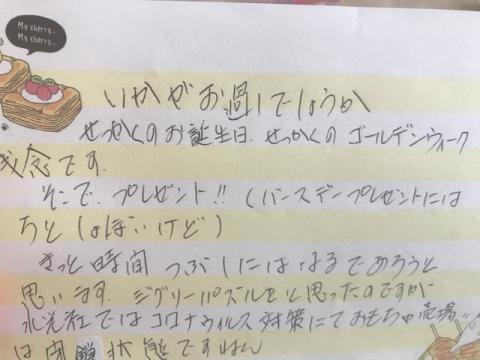 My cherry...
My cherry...
いかがお過しでしょうか
せっかくのお誕生日、せっかくのゴールデンウィーク
残念です。
そこで、プレゼント!!(バースデープレゼントには
ちと しょぼいけど)
きっと時間 つぶしにはなるであろうと
思います。ジグソーパズルをと思ったのですが
ではコロナウィルス対策にておもちゃ売場
は 状態ですねん